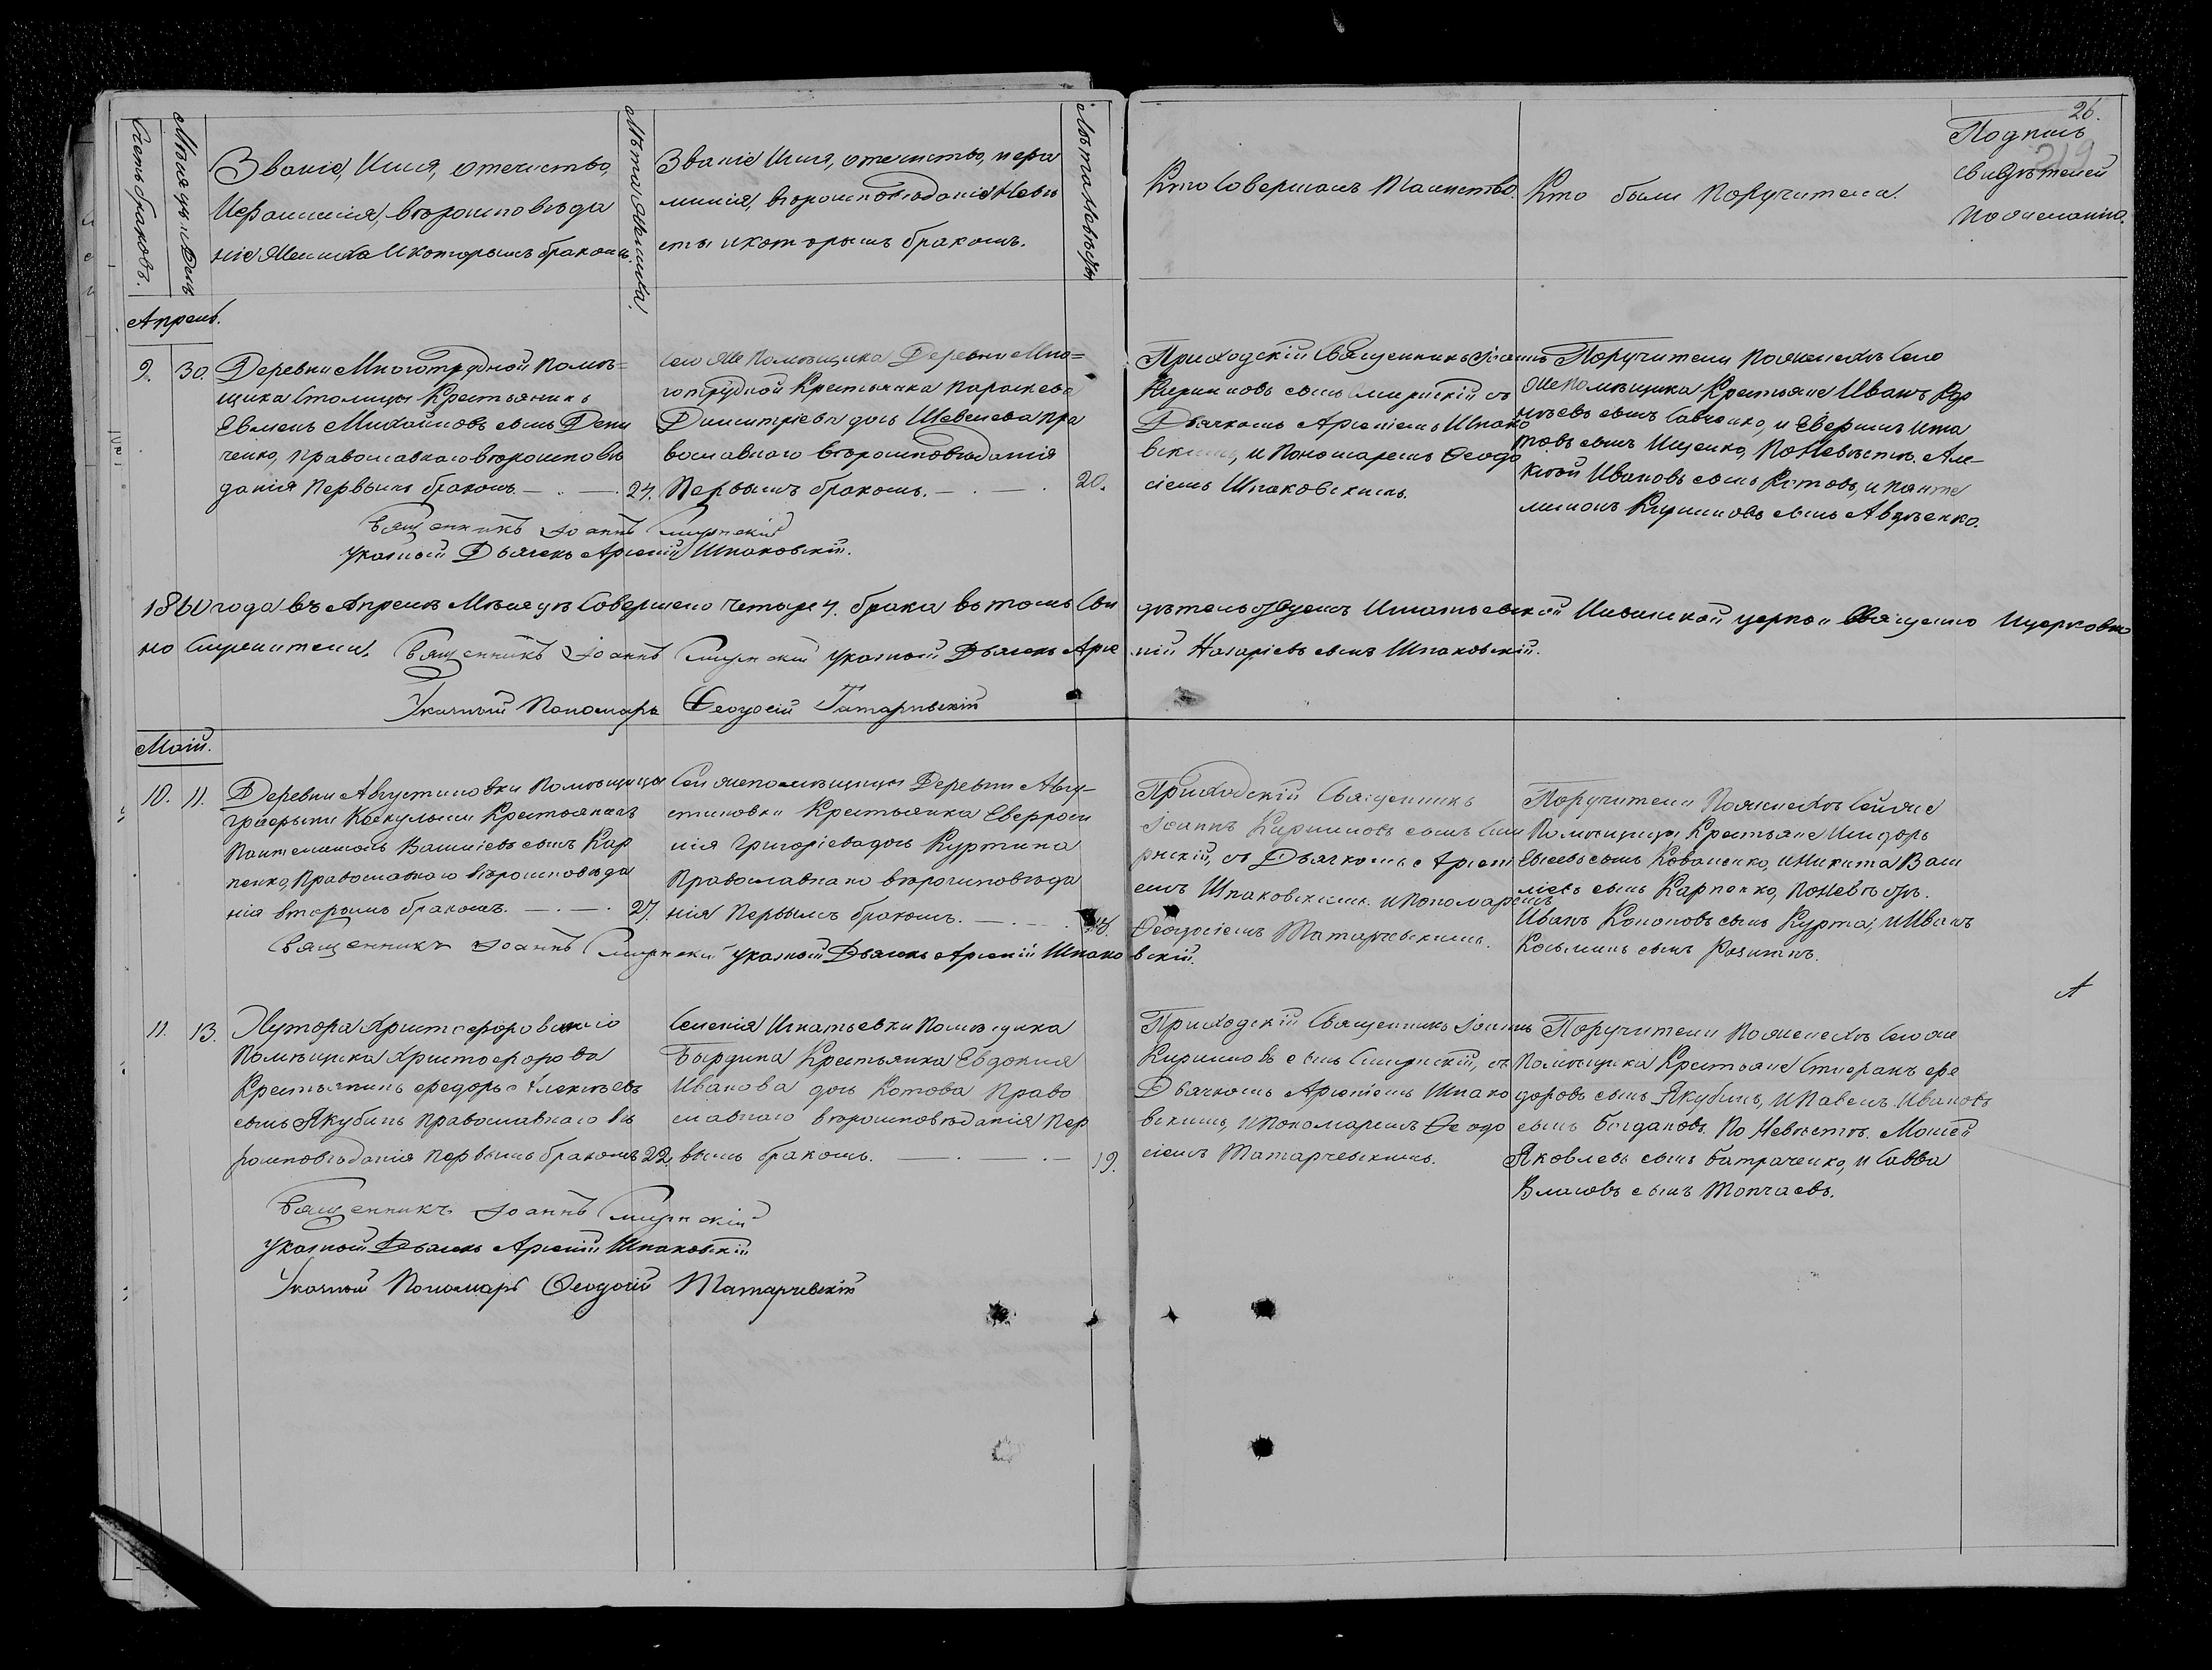 26.
219
Счетъ браковъ.
Мѣсяцъ и День
Званіе, Имя, отечество,
и фамилія, вѣроисповѣда
ніе Жениха и которымъ бракомъ.
Лѣта Жениха.
Званіе Имя, отечество, и фа
милія, вѣроисповѣданіе Невѣ
сты и которымъ бракомъ.
Лѣта Невѣсты
Кто Совершалъ Таинство.
Кто были Поручители.
Подпись
свидѣтелей
по желанію.
Апрель.
9. 30.
Деревни Многотрудной Помѣ=
щика Столицы Крестьянинъ
Евменъ Михайловъ сынъ Дени
ченко, Православнаго вѣроисповѣ
данія Первымъ бракомъ. 24.
Сего же Помѣщика Деревни Мно=
готрудной Крестьянка Параскева
Димитріева дочь Шевелева Пра
вославнаго вѣроисповѣданія
Первымъ бракомъ. 20.
Приходскій Священникъ Іоаннъ
Кирилловъ сынъ Смирнскій съ
Дьячкомъ Арсеніемъ Шпако
вскимъ, и Пономаремъ Феодо
сіемъ Шпаковскимъ.
Поручители По женихѣ Сего
же Помѣщика Крестьяне Иванъ
сынъ Савченко, и Евфимъ Игна
товъ сынъ Ищенко, По Невѣстѣ. Але
ксѣй Ивановъ сынъ Котовъ, и Панте
лимонъ Кирилловъ сынъ Авдѣенко.
Священникъ Іоаннъ Смирнскій
Указной Дьячекъ Арсеній Шпаковскій.
1860 года въ Апрелѣ Мѣсяцѣ Совершено четыре 4. брака въ томъ Сви
дѣтельствуемъ Игнатьевской церкви Священно И церковно
но Служители.
Священникъ Іоаннъ Смирнскій Указной Дьячекъ Арсе
ній Назаріевъ сынъ Шпаковскій.
Указный Пономарь Феодосій Татарчевскій
Маій.
10. 11.
Деревни Августиновки Помѣщицы
Графыни Крестьянинъ
Пантелимонъ Василіевъ сынъ Кар
пенко, Православнаго вѣроисповѣда
нія вторымъ бракомъ. 27.
Сей же помѣщицы Деревни Авгу-
стиновки Крестьянка Евфроси
нія Григоріева дочь Куртина
Православнаго вѣроисповѣда
нія Первымъ бракомъ.
Приходскій Священникъ
Іоаннъ Кирилловъ сынъ Сми
рнскій, съ Дьячкомъ Арсені
емъ Шпаковскимъ и Пономаремъ
Феодосіемъ Татарчевскимъ.
Поручители По женихѣ Сей же
Помѣщицы Крестьяне Сидоръ
Евсеевъ сынъ Коваленко, и Никита Васи
ліевъ сынъ Карпенко, По Невѣстѣ.
Иванъ Кононовъ сынъ Курта, и Иванъ
Косьминъ сынъ
Священникъ Іоаннъ Смирнскій Указной Дьячекъ Арсеній Шпако
вскій.
11. 13.
Хутора Христофоровскаго
Помѣщика Христофорова
Крестьянинъ Федоръ Алексѣевъ
сынъ Якубинъ Православнаго вѣ
роисповѣданія Первымъ бракомъ 22.
Селенія Игнатьевки Помѣщика
Бырдина Крестьянка Евдокія
Иванова дочь Котова Право
славнаго вѣроисповѣданія Пер
вымъ бракомъ. 19.
Приходскій Священникъ Іоаннъ
Кирилловъ сынъ Смирнскій, съ
Дьячкомъ Арсеніемъ Шпако
вскимъ, и Пономаремъ Феодо
сіемъ Татарчевскимъ.
Поручители По женихѣ Сего же
Помѣщика Крестьяне Стефанъ Фе
доровъ сынъ Якубинъ, и Павелъ Ивановъ
сынъ Богдановъ. По Невѣстѣ. Моисей
Яковлевъ сынъ Батраченко, и Савва
Власовъ сынъ Топчаевъ.
Священникъ Іоаннъ Смирнскій
Указной Дьячекъ Арсеній Шпаковскій
Указный Пономарь Феодосій Татарчевскій